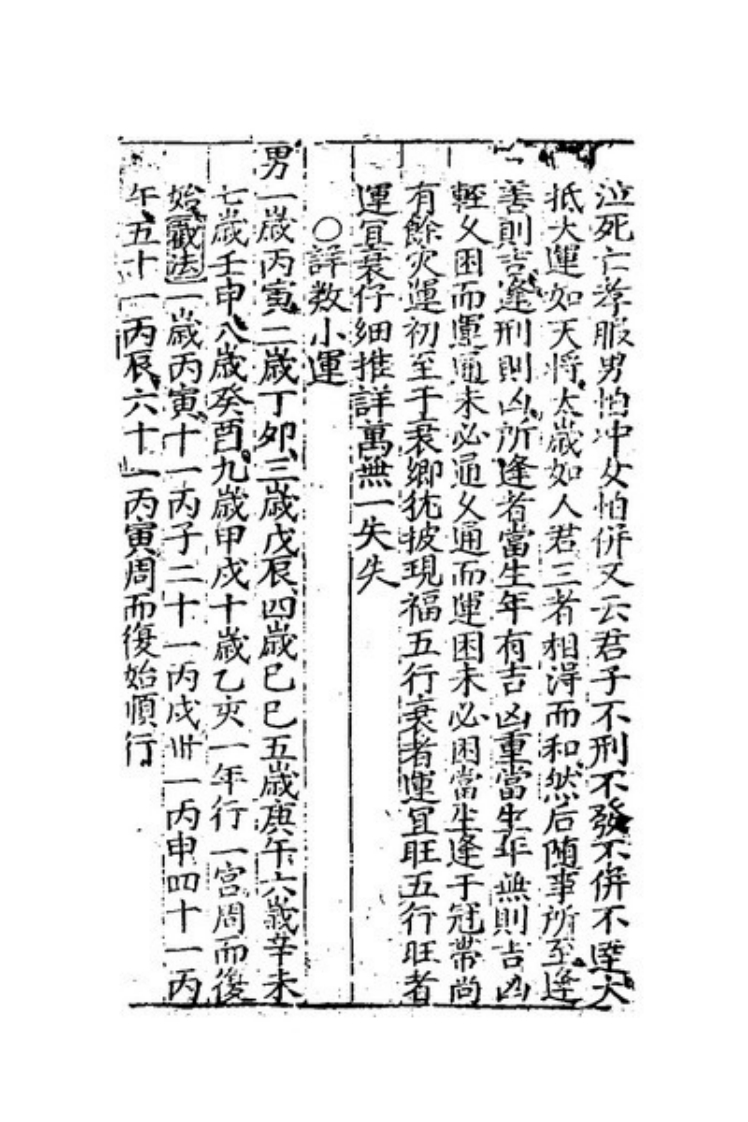 泣死亡孝服男怕冲女怕併又云君子不刑不發不併不遷大
抵大運如天將太歲如人君三者相得而和然后随事所至逢
善則吉逢刑則凶所逢者當生年有吉凶重當生年無則吉凶
輕父困而運通未必通父通而運困未必困當生逢于冠帶尚
有餘灾運初至于衰鄉犹披現福五行衰者運宜旺五行旺者
運宜衰仔細推詳萬無一失失
○詳数小運
男一歲丙寅二歲丁卯三歲戊辰四歲巳巳五歲庚午六歲辛未
七歲壬申八歲癸酉九歲甲戌十歲乙亥一年行一宮周而復
始截法一歲丙寅十一丙子二十一丙戌卅一丙申四十一丙
午五十一丙辰六十一丙寅周而復始順行